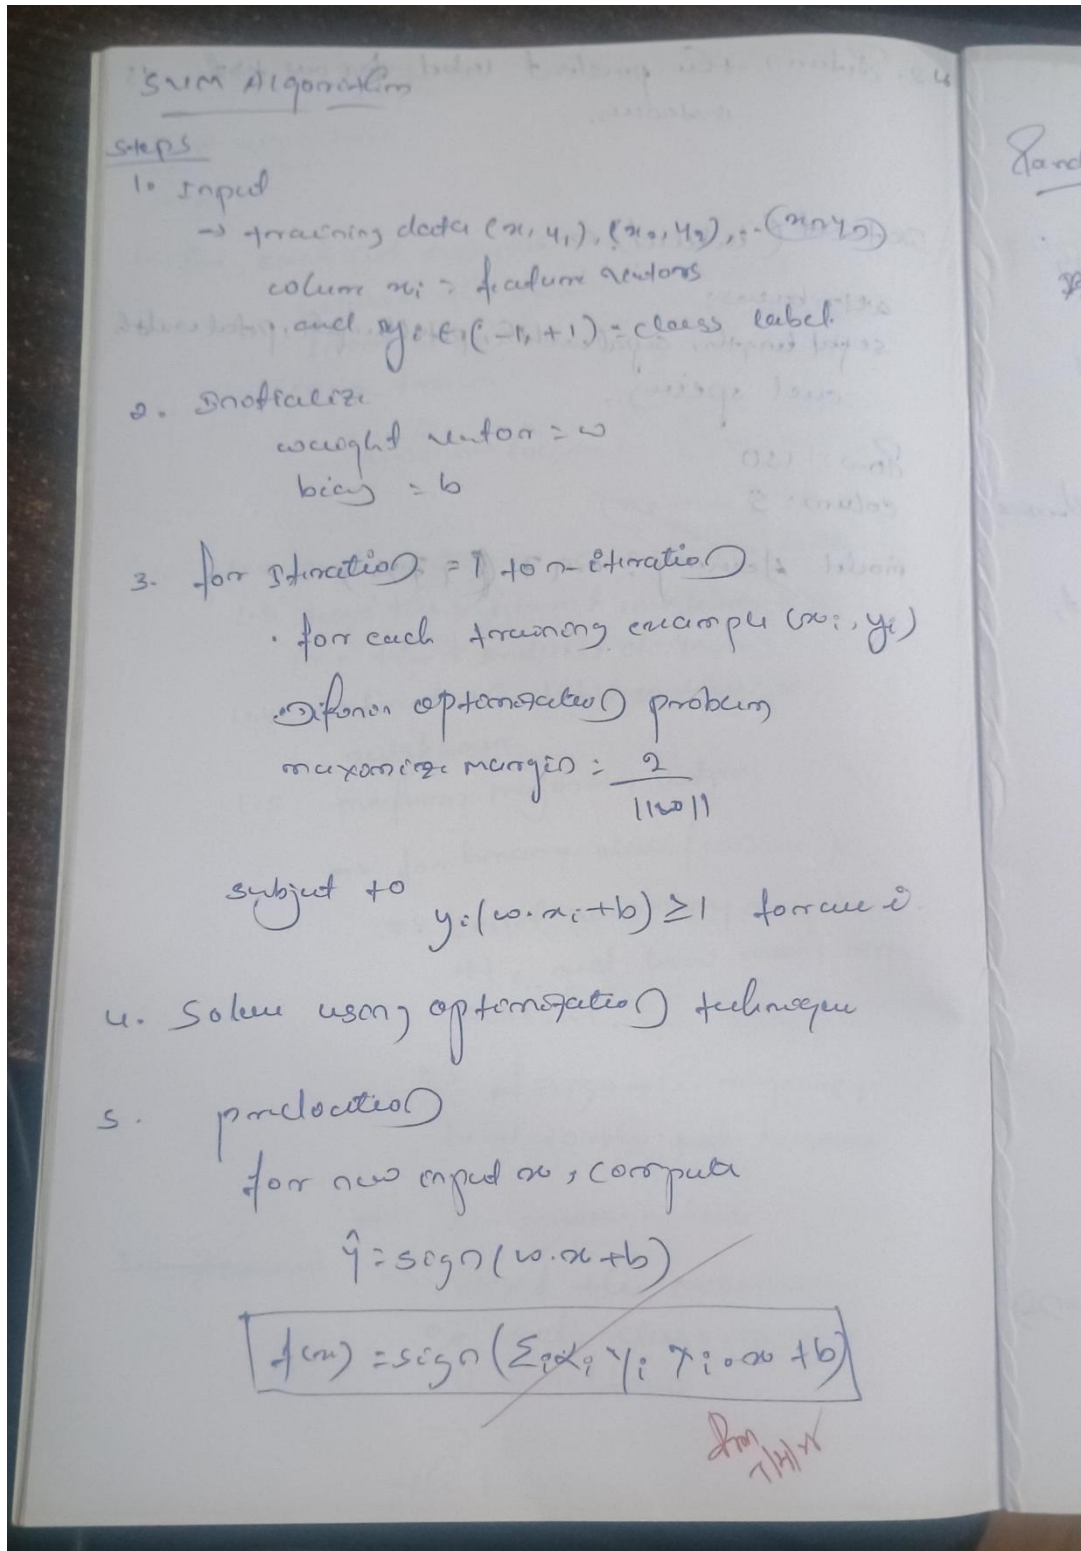 SVM Algorithm
Steps
1. Input
→ training data (x1 y1), (x2, y2), .. (xn yn)
column xi = feature vectors
and yi ∈ (-1, +1) = class label.
2. Initialize
weight vector = w
bias = b
3. for Iteration = 1 to n-iteration
. for each training example (xi, yi)
optimization problem
maximize margin = 2
||w||
subject to yi(w.xi+b) ≥ 1 for all i
4. Solve using optimization technique
5. prediction
for new input x, compute
ŷ = sign(w.x+b)
f(x) = sign(Σi αi yi xi . x + b)
Rand